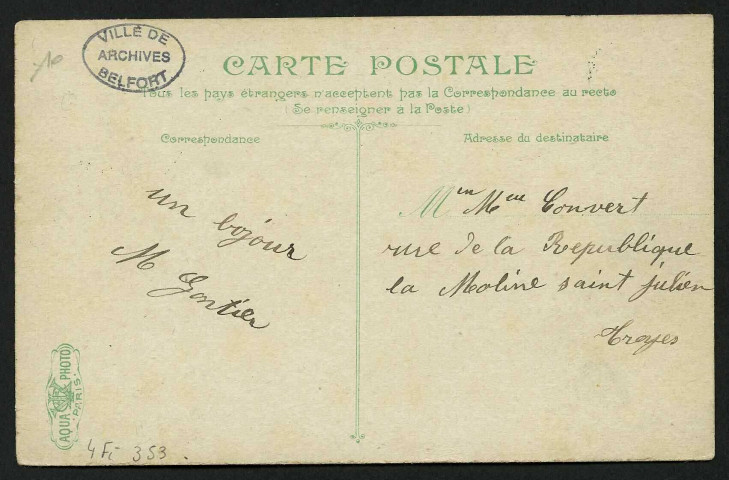 VILLE DE
ARCHIVES
BELFORT
CARTE POSTALE
Tous les pays étrangers n'acceptent pas la Correspondance au recto
(Se renseigner à la Poste)
Correspondance
Adresse du destinataire
un bojour
M Gontier
Mme Convert
rue de la Republique
la Moline saint julien
troyes
AQUA PHOTO
PARIS
4 Fi 353